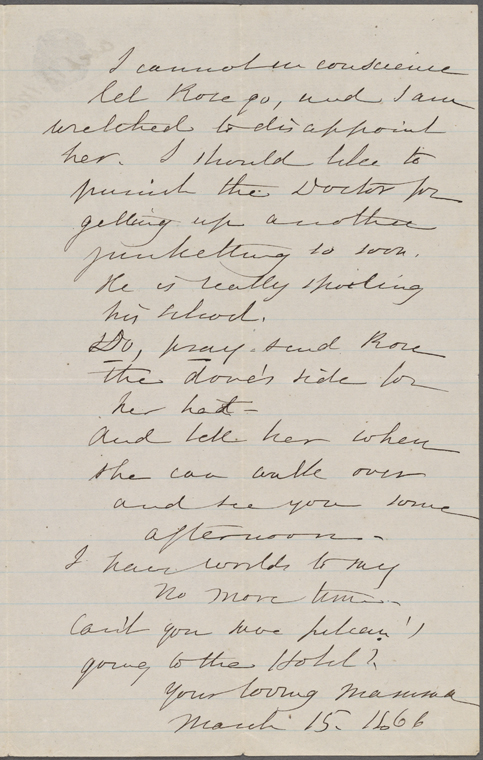 I cannot in conscience
let Rose go, and I am
wretched to disappoint
her. I should like to
punish the Doctor for
getting up another
junketting so soon.
He is really spoiling
his school.
Do, pray send Rose
the dove's side for
her hat -
And tell her when
she can walk over
and see you some
afternoon -
I have worlds to say
No more time -
Can't you save
going to the Hotel?
Your loving Mamma
March 15. 1866